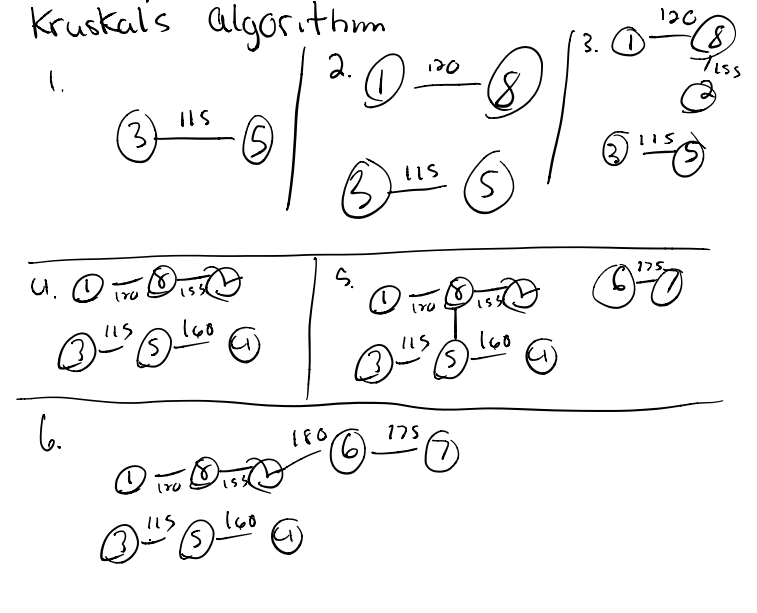 Kruskal's algorithm
1.
3 115 5
2.
1 120 8
3 115 5
3.
1 120 8
155
2
3 115 5
4.
1 120 8 155 2
3 115 5 160 4
5.
1 120 8 155 2
6 175 7
3 115 5 160 4
6.
180 6 175 7
1 120 8 155 2
3 115 5 160 4